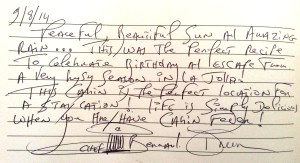 9/8/14
Peaceful, Beautiful Sun and Amazing
Rain... This was the Perfect Recipe
To Celebrate Birthday and Escape From
A Very busy Season in La Jolla.
This Cabin is the Perfect location for
A STAYCATION! Life is Simply Delicious
When you Have Cabin Fever!
Chef